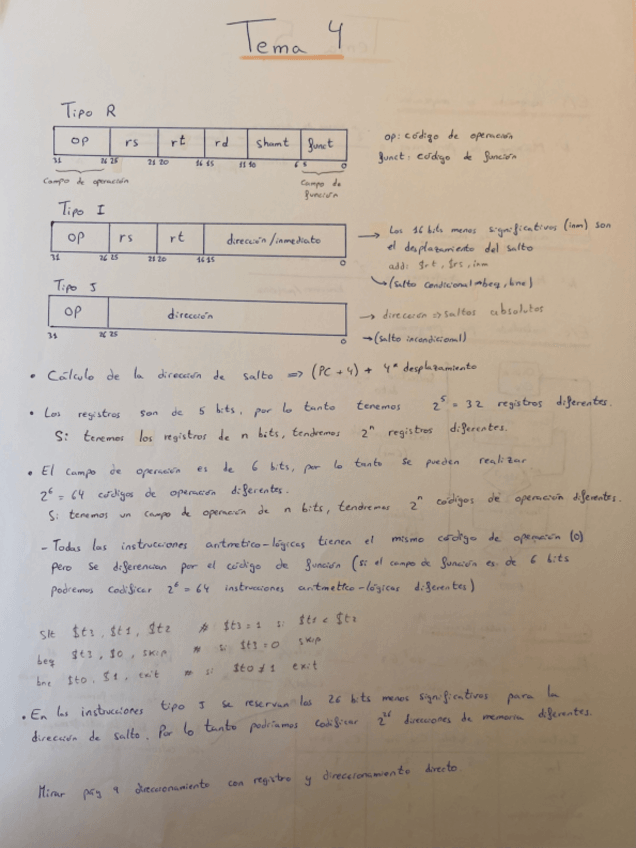 Tema 4
Tipo R
op rs rt rd shamt funct
31 26 25 21 20 16 15 11 10 6 5 0
Campo de operación
Campo de función
op: código de operación
funct: código de función
Tipo I
op rs rt dirección/inmediato
31 26 25 21 20 16 15 0
→ Los 16 bits menos significativos (inm) son
el desplazamiento del salto
add: $rt, $rs, inm
→ (salto condicional → beq, bne)
Tipo J
op dirección
31 26 25 0
→ dirección => saltos absolutos
→ (salto incondicional)
• Cálculo de la dirección de salto => (PC + 4) + 4 * desplazamiento
• Los registros son de 5 bits, por lo tanto tenemos 2⁵ = 32 registros diferentes.
Si tenemos los registros de n bits, tendremos 2ⁿ registros diferentes.
• El campo de operación es de 6 bits, por lo tanto se pueden realizar
2⁶ = 64 códigos de operación diferentes.
Si tenemos un campo de operación de n bits, tendremos 2ⁿ códigos de operación diferentes.
- Todas las instrucciones aritmetico-lógicas tienen el mismo código de operación (0)
pero se diferencian por el código de función (si el campo de función es de 6 bits
podremos codificar 2⁶ = 64 instrucciones aritmetico-lógicas diferentes)
Slt $t3, $t1, $t2 # $t3 = 1 si $t1 < $t2
beq $t3, $0, skip # si $t3 = 0 skip
bne $t0, $1, exit # si $t0 ≠ 1 exit
• En las instrucciones tipo J se reservan los 26 bits menos significativos para la
dirección de salto. Por lo tanto podríamos codificar 2²⁶ direcciones de memoria diferentes.
Mirar pág 9 direccionamiento con registro y direccionamiento directo.